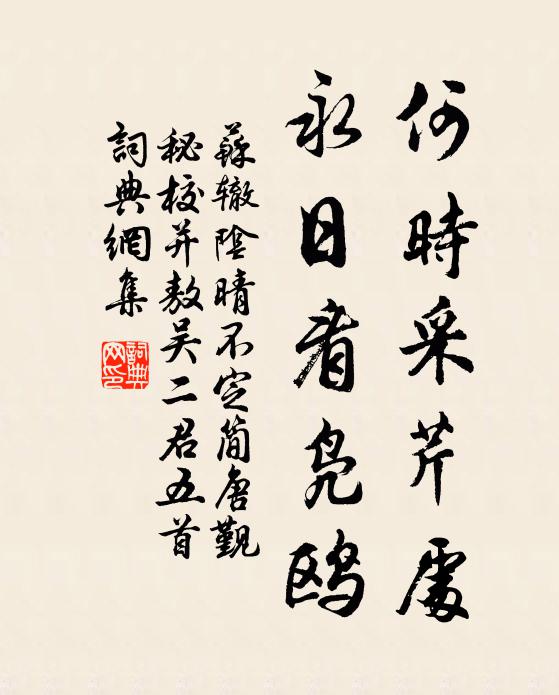 何時采芹處
永日看鳧鷗
蘇轍陰晴不定簡唐覲
秘校并敖吴二君五首
詞典網集
詞典網印